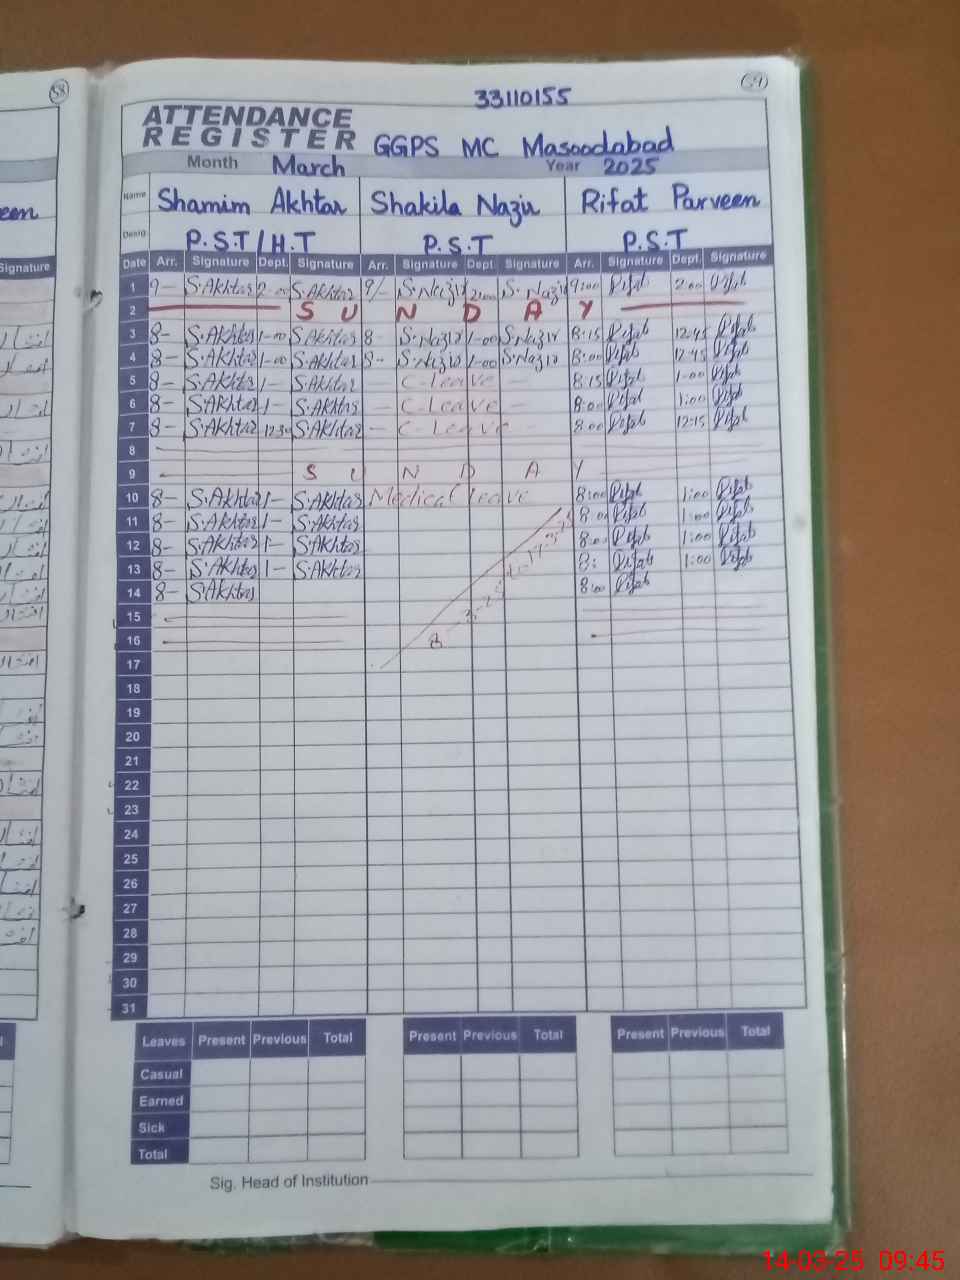 59
33110155
ATTENDANCE
REGISTER GGPS MC Masoodabad
Month March Year 2025
Name Shamim Akhtar Shakila Nazir Rifat Parveen
Desig P.S.T/H.T P.S.T P.S.T
Date Arr. Signature Dept. Signature Arr. Signature Dept. Signature Arr. Signature Dept. Signature
1 9- S.Akhtar 2-00 S.Akhtar 9/- S.Nazir 2:00 S.Nazir 9:00 Rifat 2:00 Rifat
2 S U N D A Y
3 8- S.Akhtar 1-00 S.Akhtar 8- S.Nazir 1-00 S.Nazir 8:15 Rifat 12:45 Rifat
4 8- S.Akhtar 1-00 S.Akhtar 8- S.Nazir 1-00 S.Nazir 8:00 Rifat 12:45 Rifat
5 8- S.Akhtar 1- S.Akhtar - C-leave - 8:15 Rifat 1-00 Rifat
6 8- S.Akhtar 1- S.Akhtar - C-leave - 8:00 Rifat 1:00 Rifat
7 8- S.Akhtar 12:30 S.Akhtar - C-leave - 8:00 Rifat 12:15 Rifat
8
9 S U N D A Y
10 8- S.Akhtar 1- S.Akhtar Medical leave 8:00 Rifat 1:00 Rifat
11 8- S.Akhtar 1- S.Akhtar 8:00 Rifat 1:00 Rifat
12 8- S.Akhtar 1- S.Akhtar 8:00 Rifat 1:00 Rifat
13 8- S.Akhtar 1- S.Akhtar 8: Rifat 1:00 Rifat
14 8- S.Akhtar 8:00 Rifat
15
16
17
18
19
20
21
22
23
24
25
26
27
28
29
30
31
Leaves Present Previous Total Present Previous Total Present Previous Total
Casual
Earned
Sick
Total
Sig. Head of Institution
58
Signature
14-03-25 09:45